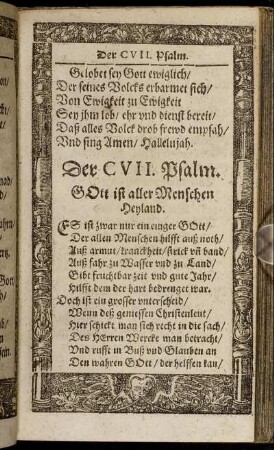 Der CVII. Psalm.
Gelobet sey Gott ewiglich/
Der seines Volcks erbarmet sich/
Von Ewigkeit zu Ewigkeit
Sey jhm lob/ ehr vnd dienst bereit/
Daß alles Volck drob frewd empfah/
Vnd sing Amen/ Hallelujah.
Der CVII. Psalm.
GOtt ist aller Menschen
Heyland.
ES ist zwar nur ein einger GOtt/
Der allen Menschen hilfft auß noth/
Auß armut/ kranckheit/ strick vñ band/
Auß fahr zu Wasser vnd zu Land/
Gibt feuchtbar zeit vnd gute Jahr/
Hilfft dem der hart bedrenget war.
Doch ist ein grosser vnterscheid/
Wenn deß geniessen Christenleut/
Hier schickt man sich recht in die sach/
Des HErren Werck man betracht/
Vnd rufft in Buß vnd Glauben an
Den wahren GOtt/ der helffen kan/